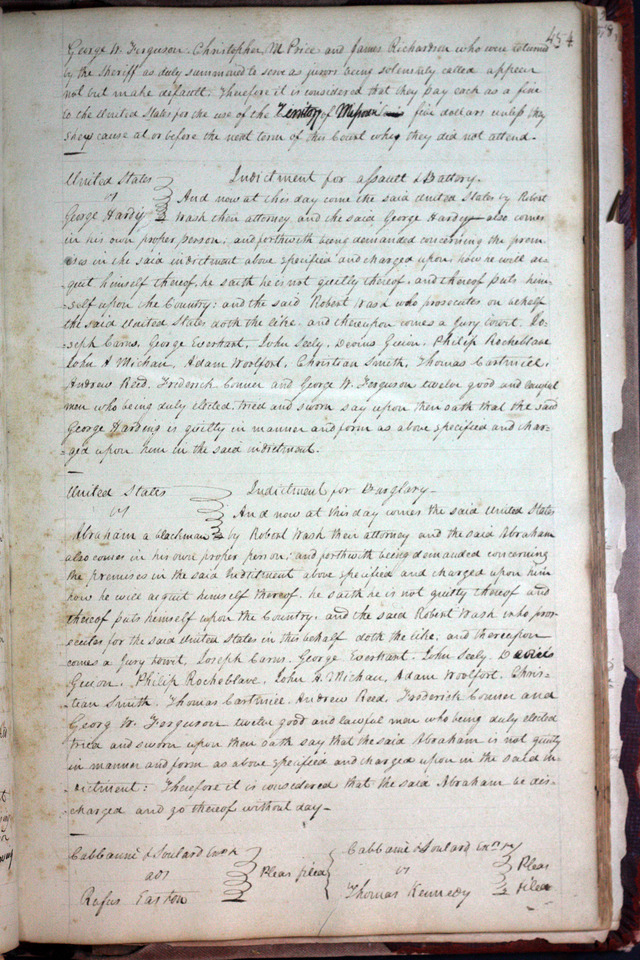 454
George W. Ferguson. Christopher M Price and James Richardson who were returned
by the Sheriff as duly summond to serve as jurors being solemnly called appear
not but make default. Therefore it is considered that they pay each as a fine
to the United States for the use of the Territory of Missouri five dollars unless they
shew cause at or before the next term of this Court why they did not attend.
United States
vs
George Hardy
Indictment for assault & Battery.
And now at this day come the said United States by Robert
Wash their attorney and the said George Harding also comes
in his own proper person, and forthwith being demanded concerning the prem-
ises in the said indictment above specified and charged upon, how he will ac-
quit himself thereof, he saith he is not guilty thereof, and thereof puts him-
self upon the Country; and the said Robert Wash who prosecutes on behalf
the said United States doth the like. and thereupon comes a Jury towit. Jo-
seph Carns, George Everhart, John Seely, Guion, Philip Rocheblave
John A Michau, Adam Woolfort, Christian Smith, Thomas Cartmiel,
Andrew Reed, Friderick Conner and George W. Ferguson twelve good and lawful
men who being duly elected, tried and sworn say upon their oath that the said
George Harding is guilty in manner and form as above specified and char-
ged upon him in the said indictment.
United States
vs
Abraham a blackman
Indictment for Burglary-
And now at this day comes the said United States
by Robert Wash their attorney and the said Abraham
also comes in his own proper person; and forthwith being demanded concerning
the premises in the said Indictment above specified and charged upon him
how he will acquit himself thereof. he saith he is not guilty thereof and
thereof puts himself upon the Country, and the said Robert Wash who pros-
ecutes for the said United States in this behalf doth the like; and thereupon
comes a Jury towit, Joseph Carns. George Everhart, John Seely,
Guion, Philip Rocheblave, John A. Michau, Adam Woolfort. Chris-
tian Smith. Thomas Cartmiel. Andrew Reed, Frederick Conner and
Georg W. Ferguson twelve good and lawful men who being duly elected
tried and sworn upon their oath say that the said Abraham is not guilty
in manner and form as above specified and charged upon in the said in-
dictment: Therefore it is considered that the said Abraham be dis-
charged and go thereof without day-
Cabbanne & Soulard
ads
Rufus Easton
Pleas filed
Cabbanne & Soulard
vs
Thomas Kennedy
Pleas
filed